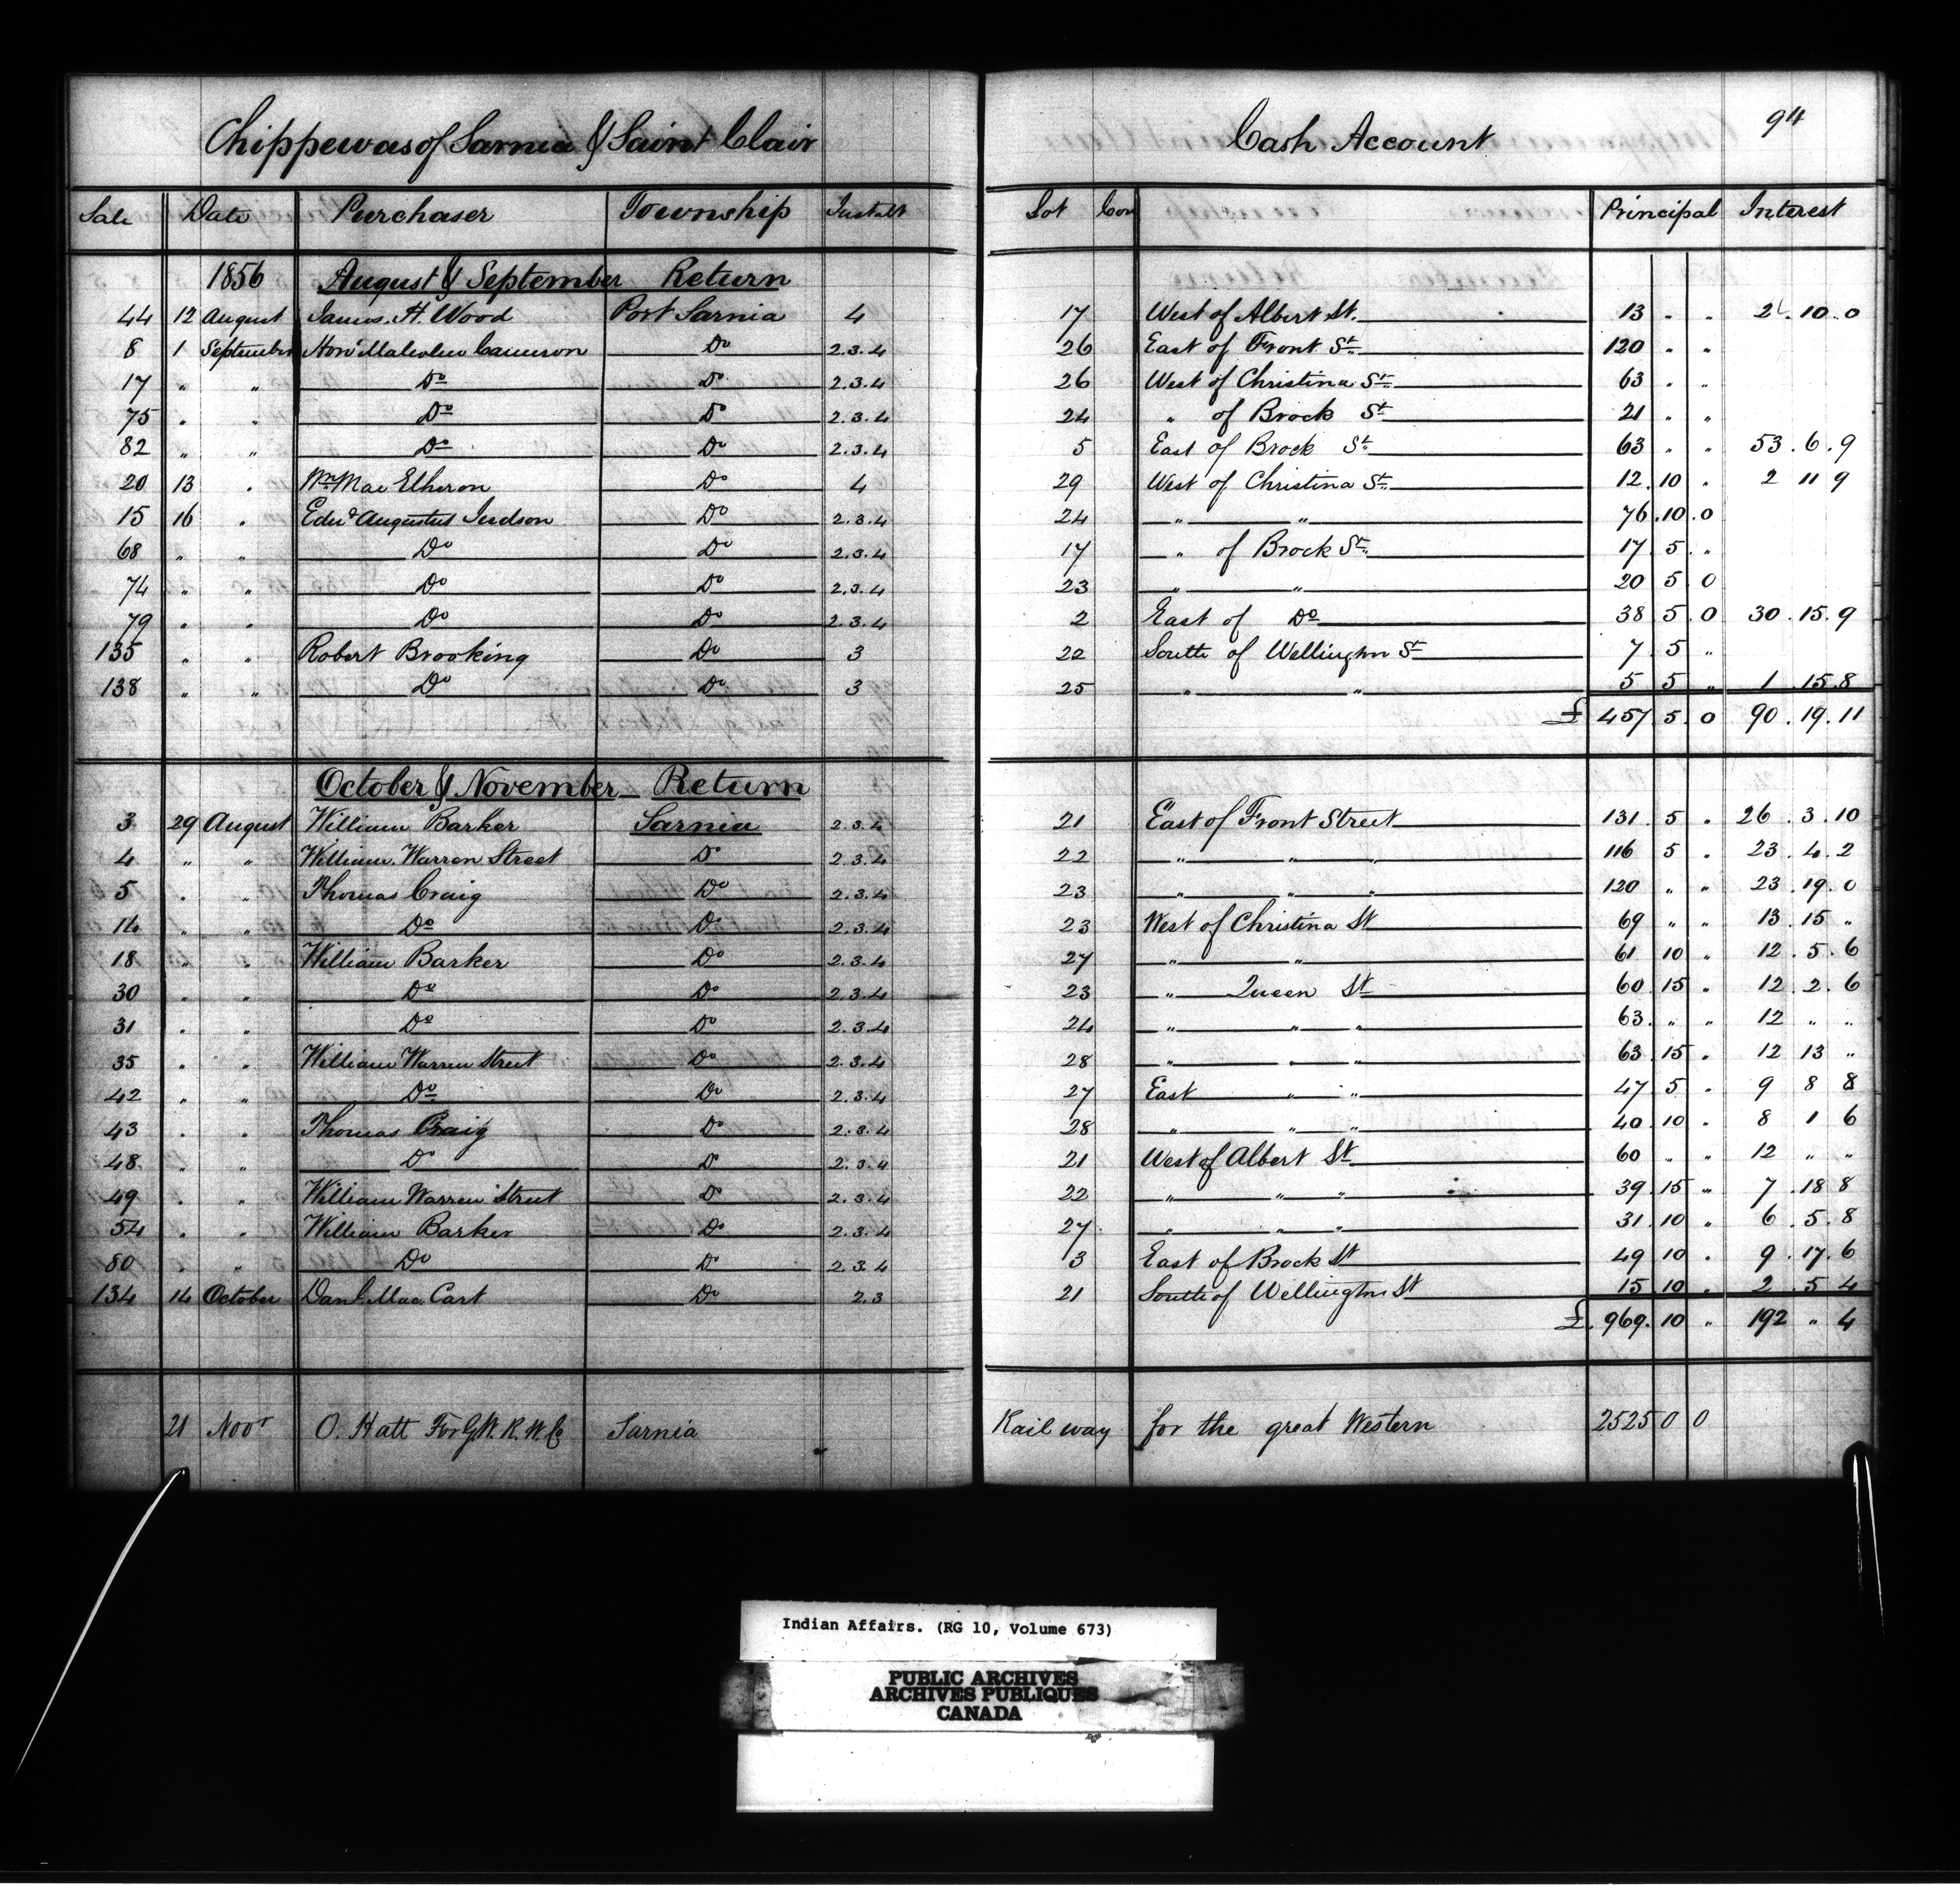 Chippewas of Sarnia & Saint Clair Cash Account 94
Sale Date Purchaser Township Instalt Lot Con Principal Interest
1856 August & September Return
44 12 August James. H. Wood Port Sarnia 4 17 West of Albert St. 13 " " 2 . 10 . 0
8 1 September Honl Malcolm Cameron Do 2.3.4 26 East of Front St 120 " "
17 " " Do Do 2.3.4 26 West of Christina St 63 " "
75 " " Do Do 2.3.4 24 " of Brock St 21 " "
82 " " Do Do 2.3.4 5 East of Brock St 63 " " 53 . 6 . 9
20 13 " Wm Mac Elheron Do 4 29 West of Christina St 12 . 10 " 2 11 9
15 16 " Edwd Augustus Judson Do 2.3.4 24 " " 76 . 10 . 0
68 " " Do Do 2.3.4 17 " of Brock St 17 5 "
74 " " Do Do 2.3.4 23 " " 20 5 0
79 " " Do Do 2.3.4 2 East of Do 38 5 0 30 . 15 . 9
135 " " Robert Brooking Do 3 22 South of Wellington St 7 . 5 "
138 " " Do Do 3 25 " " 5 5 " 1 . 15 . 8
£ 457 5 . 0 90 . 19 . 11
October & November Return
3 29 August William Barker Sarnia 2.3.4 21 East of Front Street 131 . 5 " 26 . 3 . 10
4 " " William Warren Street Do 2.3.4 22 " " " 116 5 " 23 . 4 . 2
5 " " Thomas Craig Do 2.3.4 23 " " " 120 " " 23 . 19 . 0
14 " " Do Do 2.3.4 23 West of Christina St 69 " " 13 . 15 "
18 " " William Barker Do 2.3.4 27 " " 61 10 " 12 . 5 . 6
30 " " Do Do 2.3.4 23 " Queen St 60 . 15 " 12 . 2 . 6
31 " " Do Do 2.3.4 24 " " " 63 . " " 12 " "
35 " " William Warren Street Do 2.3.4 28 " " " 63 . 15 " 12 13 "
42 " " Do Do 2.3.4 27 East " " 47 5 " 9 8 8
43 " " Thomas Craig Do 2.3.4 28 " " " 40 . 10 " 8 1 6
48 " " Do Do 2.3.4 21 West of Albert St 60 " " 12 " "
49 " " William Warren Street Do 2.3.4 22 " " " 39 . 15 " 7 . 18 8
54 " " William Barker Do 2.3.4 27 " " " 31 . 10 " 6 . 5 . 8
80 " " Do Do 2.3.4 3 East of Brock St 49 10 " 9 . 17 . 6
134 14 October Danl. Mac Cart Do 2.3 21 South of Wellington St 15 10 " 2 . 5 4
£ 969 . 10 " 192 " 4
21 Novr O. Hatt For G.W. R. W. Co Sarnia Rail way for the great Western 2525 0 0
Indian Affairs. (RG 10, Volume 673)
PUBLIC ARCHIVES
ARCHIVES PUBLIQUES
CANADA